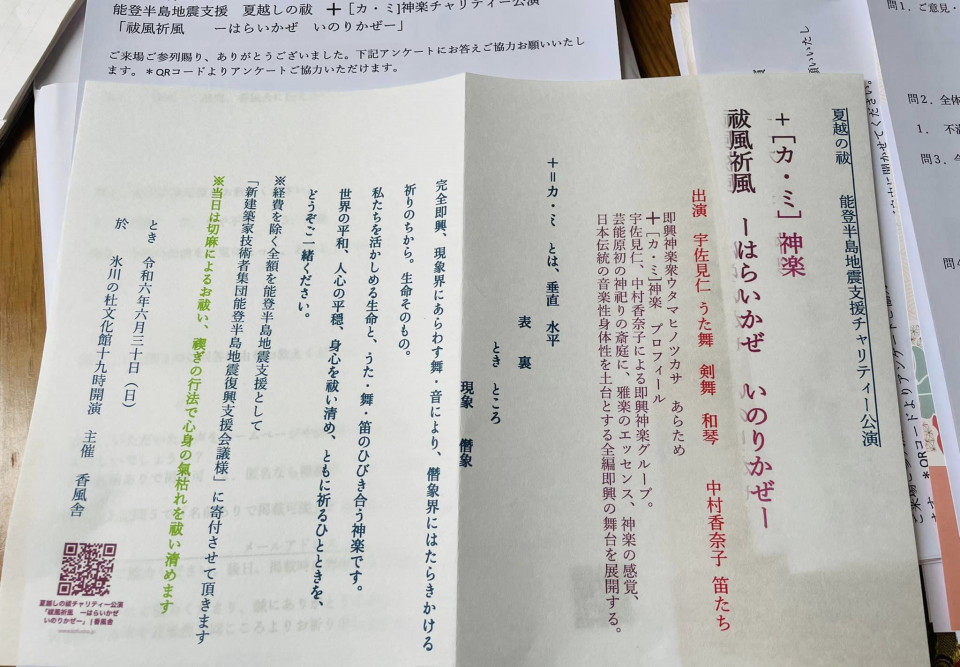 能登半島地震支援　夏越しの祓　＋［カ・ミ］神楽チャリティー公演
「祓風祈風　ーはらいかぜ　いのりかぜー」
ご来場ご参列賜り、ありがとうございました。下記アンケートにお答えご協力お願いいたします。＊QRコードよりアンケートご協力いただけます。
夏越の祓　能登半島地震支援チャリティー公演
＋［カ・ミ］神楽
祓風祈風　ーはらいかぜ　いのりかぜー
出演　宇佐見仁 うた舞　剣舞　和琴　　中村香奈子 笛たち
即興神楽衆ウタマヒノツカサ　あらため
＋［カ・ミ］神楽　プロフィール
宇佐見仁、中村香奈子による即興神楽グループ。
芸能原初の神祀りの斎庭に、雅楽のエッセンス、神楽の感覚、
日本伝統の音楽性身体性を土台とする全編即興の舞台を展開する。
＋＝カ・ミ　とは、垂直　水平
表　裏
とき　ところ
現象　僭象
完全即興、現象界にあらわす舞・音により、僭象界にはたらきかける
祈りのちから。生命そのもの。
私たちを活かしめる生命と、うた・舞・笛のひびき合う神楽です。
世界の平和、人心の平穏、身心を祓い清め、ともに祈るひとときを、
どうぞご一緒ください。
※経費を除く全額を能登半島地震支援として
「新建築家技術者集団能登半島地震復興支援会議様」に寄付させて頂きます
※当日は切麻によるお祓い、禊ぎの行法で心身の氣枯れを祓い清めます
とき　令和六年六月三十日（日）
於　　氷川の杜文化館十九時開演　主催　香風舎
夏越しの祓チャリティー公演
「祓風祈風　ーはらいかぜ
いのりかぜー」| 香風舎
問1．ご意見・
問2．全体
1．不満
問3．今
問4